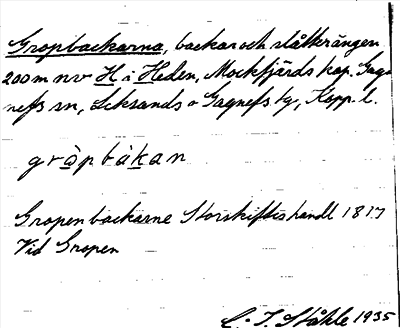 Gropbackarna, backar och slåtteränger
200 m nv H i Heden, Mockfjärds kap. Gag-
nefs sn, Leksands o Gagnefs tg, Kopp. l.
gròpbàkan
Gropenbackarne Storskifteshandl 1817
Vid Gropen
C. I. Ståhle 1935